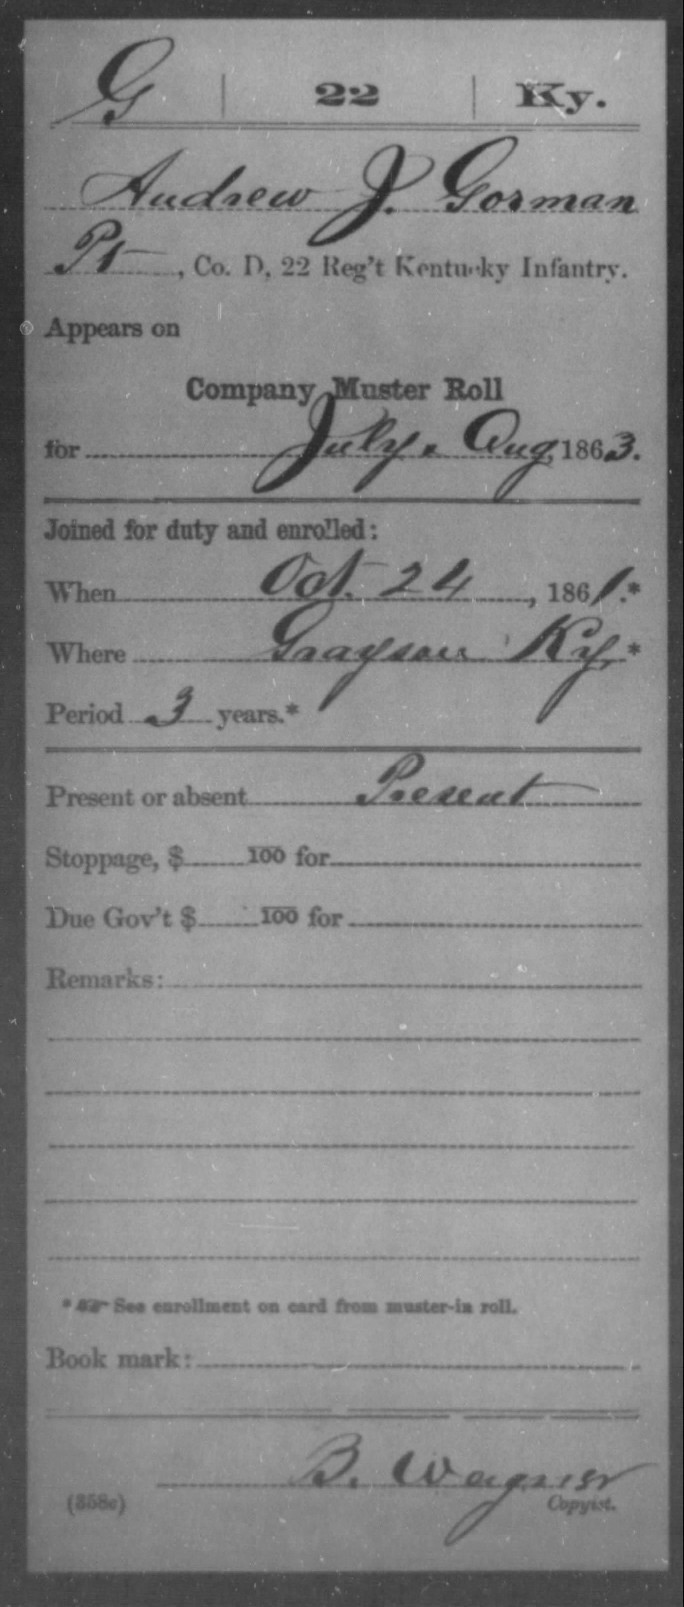 G | 22 | Ky.
Andrew J. Gorman
Pt, Co. D, 22 Reg't Kentucky Infantry.
Appears on
Company Muster Roll
for July. Aug, 1863.
Joined for duty and enrolled:
When Oct. 24, 1861.*
Where Grayson Ky.*
Period 3 years.*
Present or absent Present
Stoppage, $ 100 for
Due Gov't $ 100 for
Remarks:
* ☞ See enrollment on card from muster-in roll.
Book mark:
B. Wagner
(358c) Copyist.